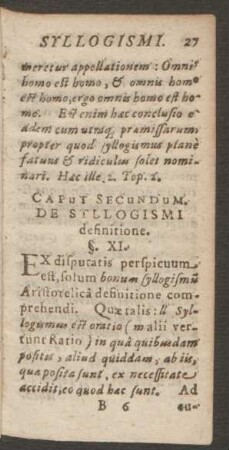 SYLLOGISMI. 27
meretur appellationem: Omnis
homo est homo, & omnis homo
est homo, ergo omnis homo est ho-
mo. Est enim hæc conclusio e-
adem cum utraq; præmissarum
propter quod syllogismus planè
fatuus & ridiculus solet nomi-
nari. Hæc ille 2. Top. 1.
CAPUT SECUNDUM.
DE SYLLOGISMI
definitione.
§. XI.
EX disputatis perspicuum
est, solum bonum syllogismũ
Aristotelicâ definitione com-
prehendi. Quæ talis: Syl-
logismus est oratio (malii ver-
tunt Ratio) in quâ quibusdam
positis, aliud quiddam, ab iis,
quæ posita sunt, ex necessitate
accidit, eo quod hæc sunt. Ad
B 6 au-